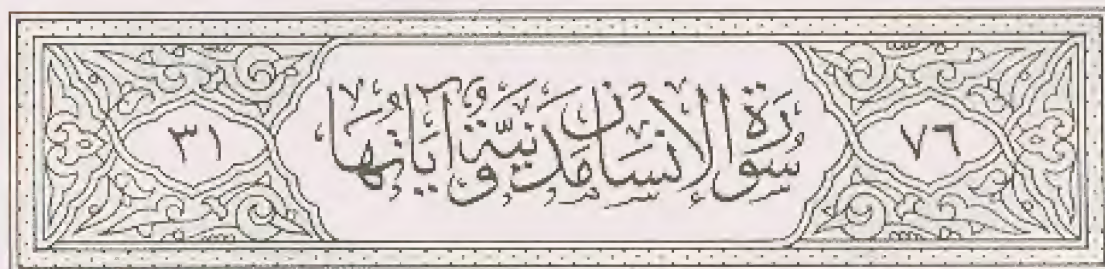 ٧٦ سُورَةُ الْإِنْسَانِ مَدَنِيَّةٌ وَآيَاتُهَا ٣١